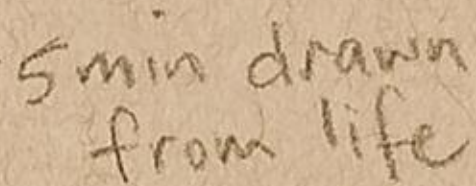 5 min drawn
from life